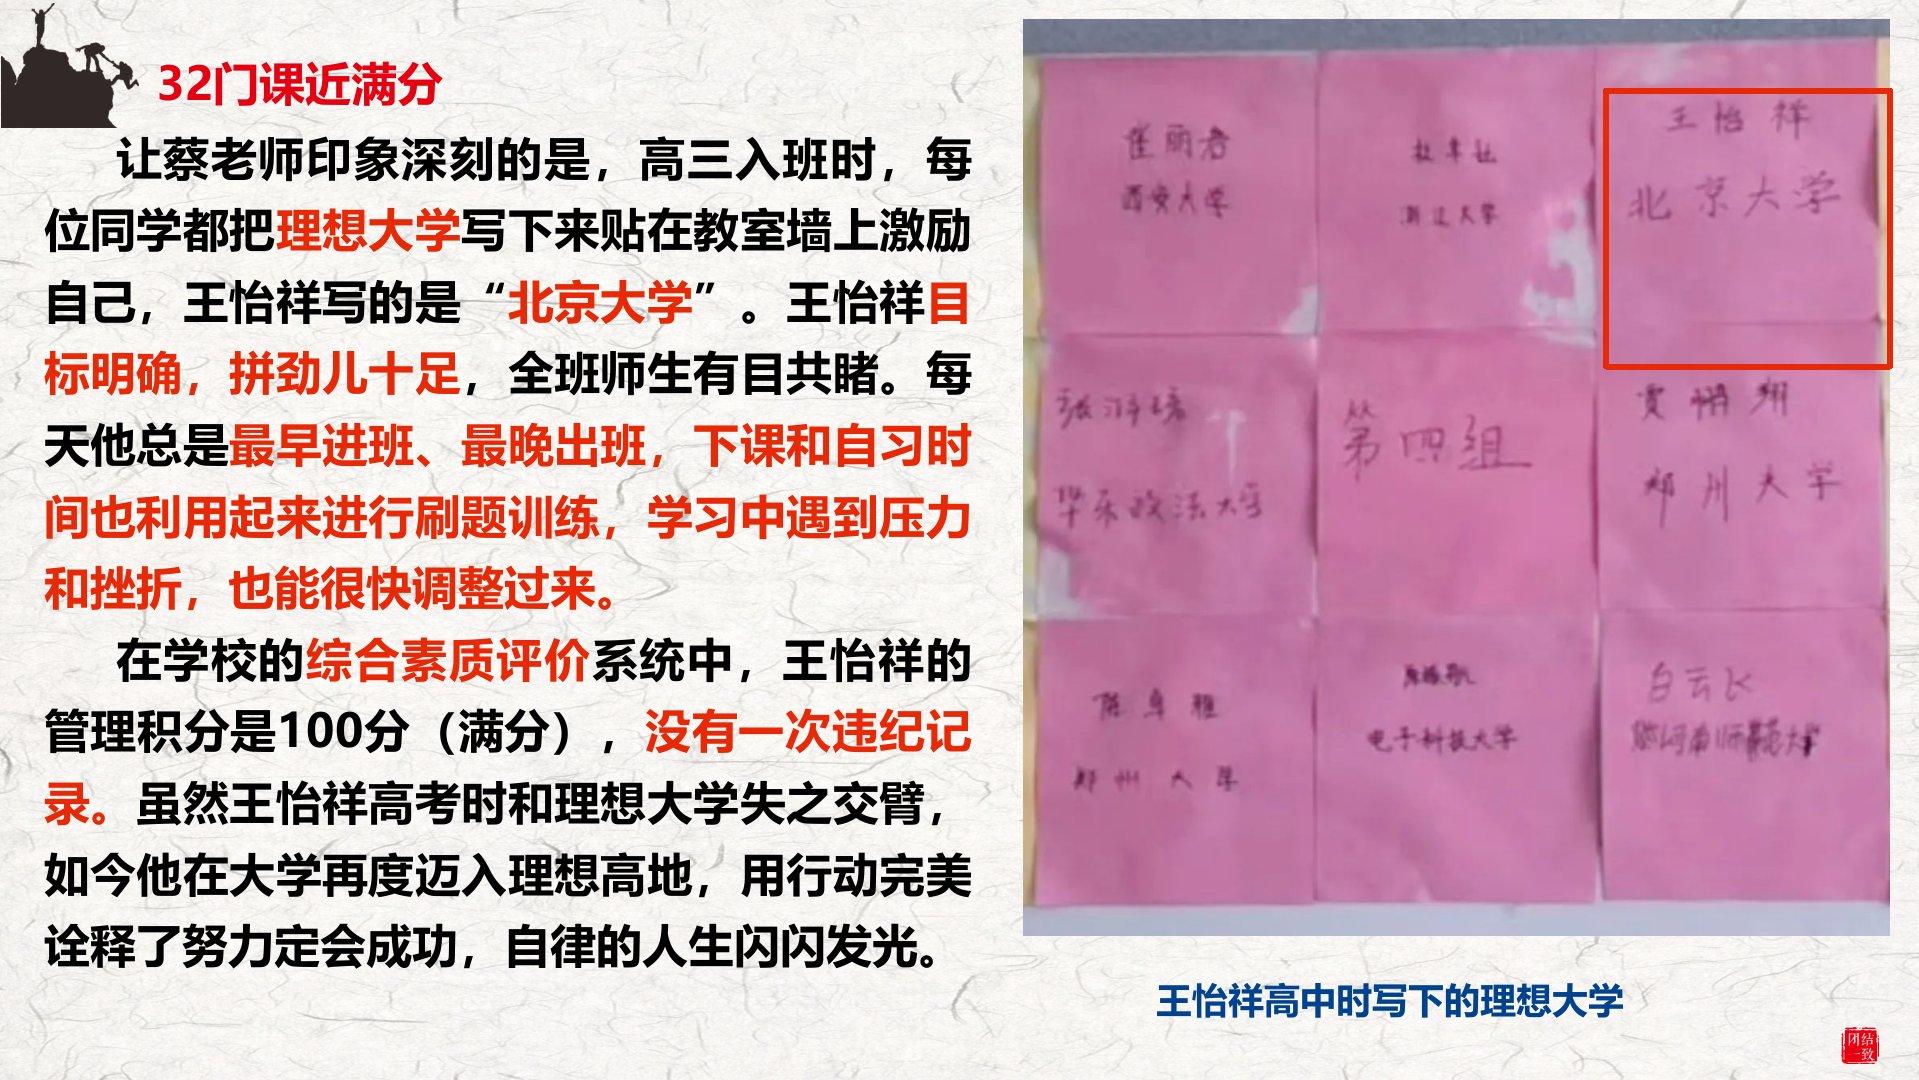 32门课近满分
让蔡老师印象深刻的是，高三入班时，每
位同学都把理想大学写下来贴在教室墙上激励
自己，王怡祥写的是“北京大学”。王怡祥目
标明确，拼劲儿十足，全班师生有目共睹。每
天他总是最早进班、最晚出班，下课和自习时
间也利用起来进行刷题训练，学习中遇到压力
和挫折，也能很快调整过来。
在学校的综合素质评价系统中，王怡祥的
管理积分是100分（满分），没有一次违纪记
录。虽然王怡祥高考时和理想大学失之交臂，
如今他在大学再度迈入理想高地，用行动完美
诠释了努力定会成功，自律的人生闪闪发光。
崔丽君
西安大学
浙江大学
王怡祥
北京大学
华东政法大学
第四组
贾栩翔
郑州大学
陈卓雅
郑州大学
电子科技大学
白云长
河南师范大学
王怡祥高中时写下的理想大学
团结
一致